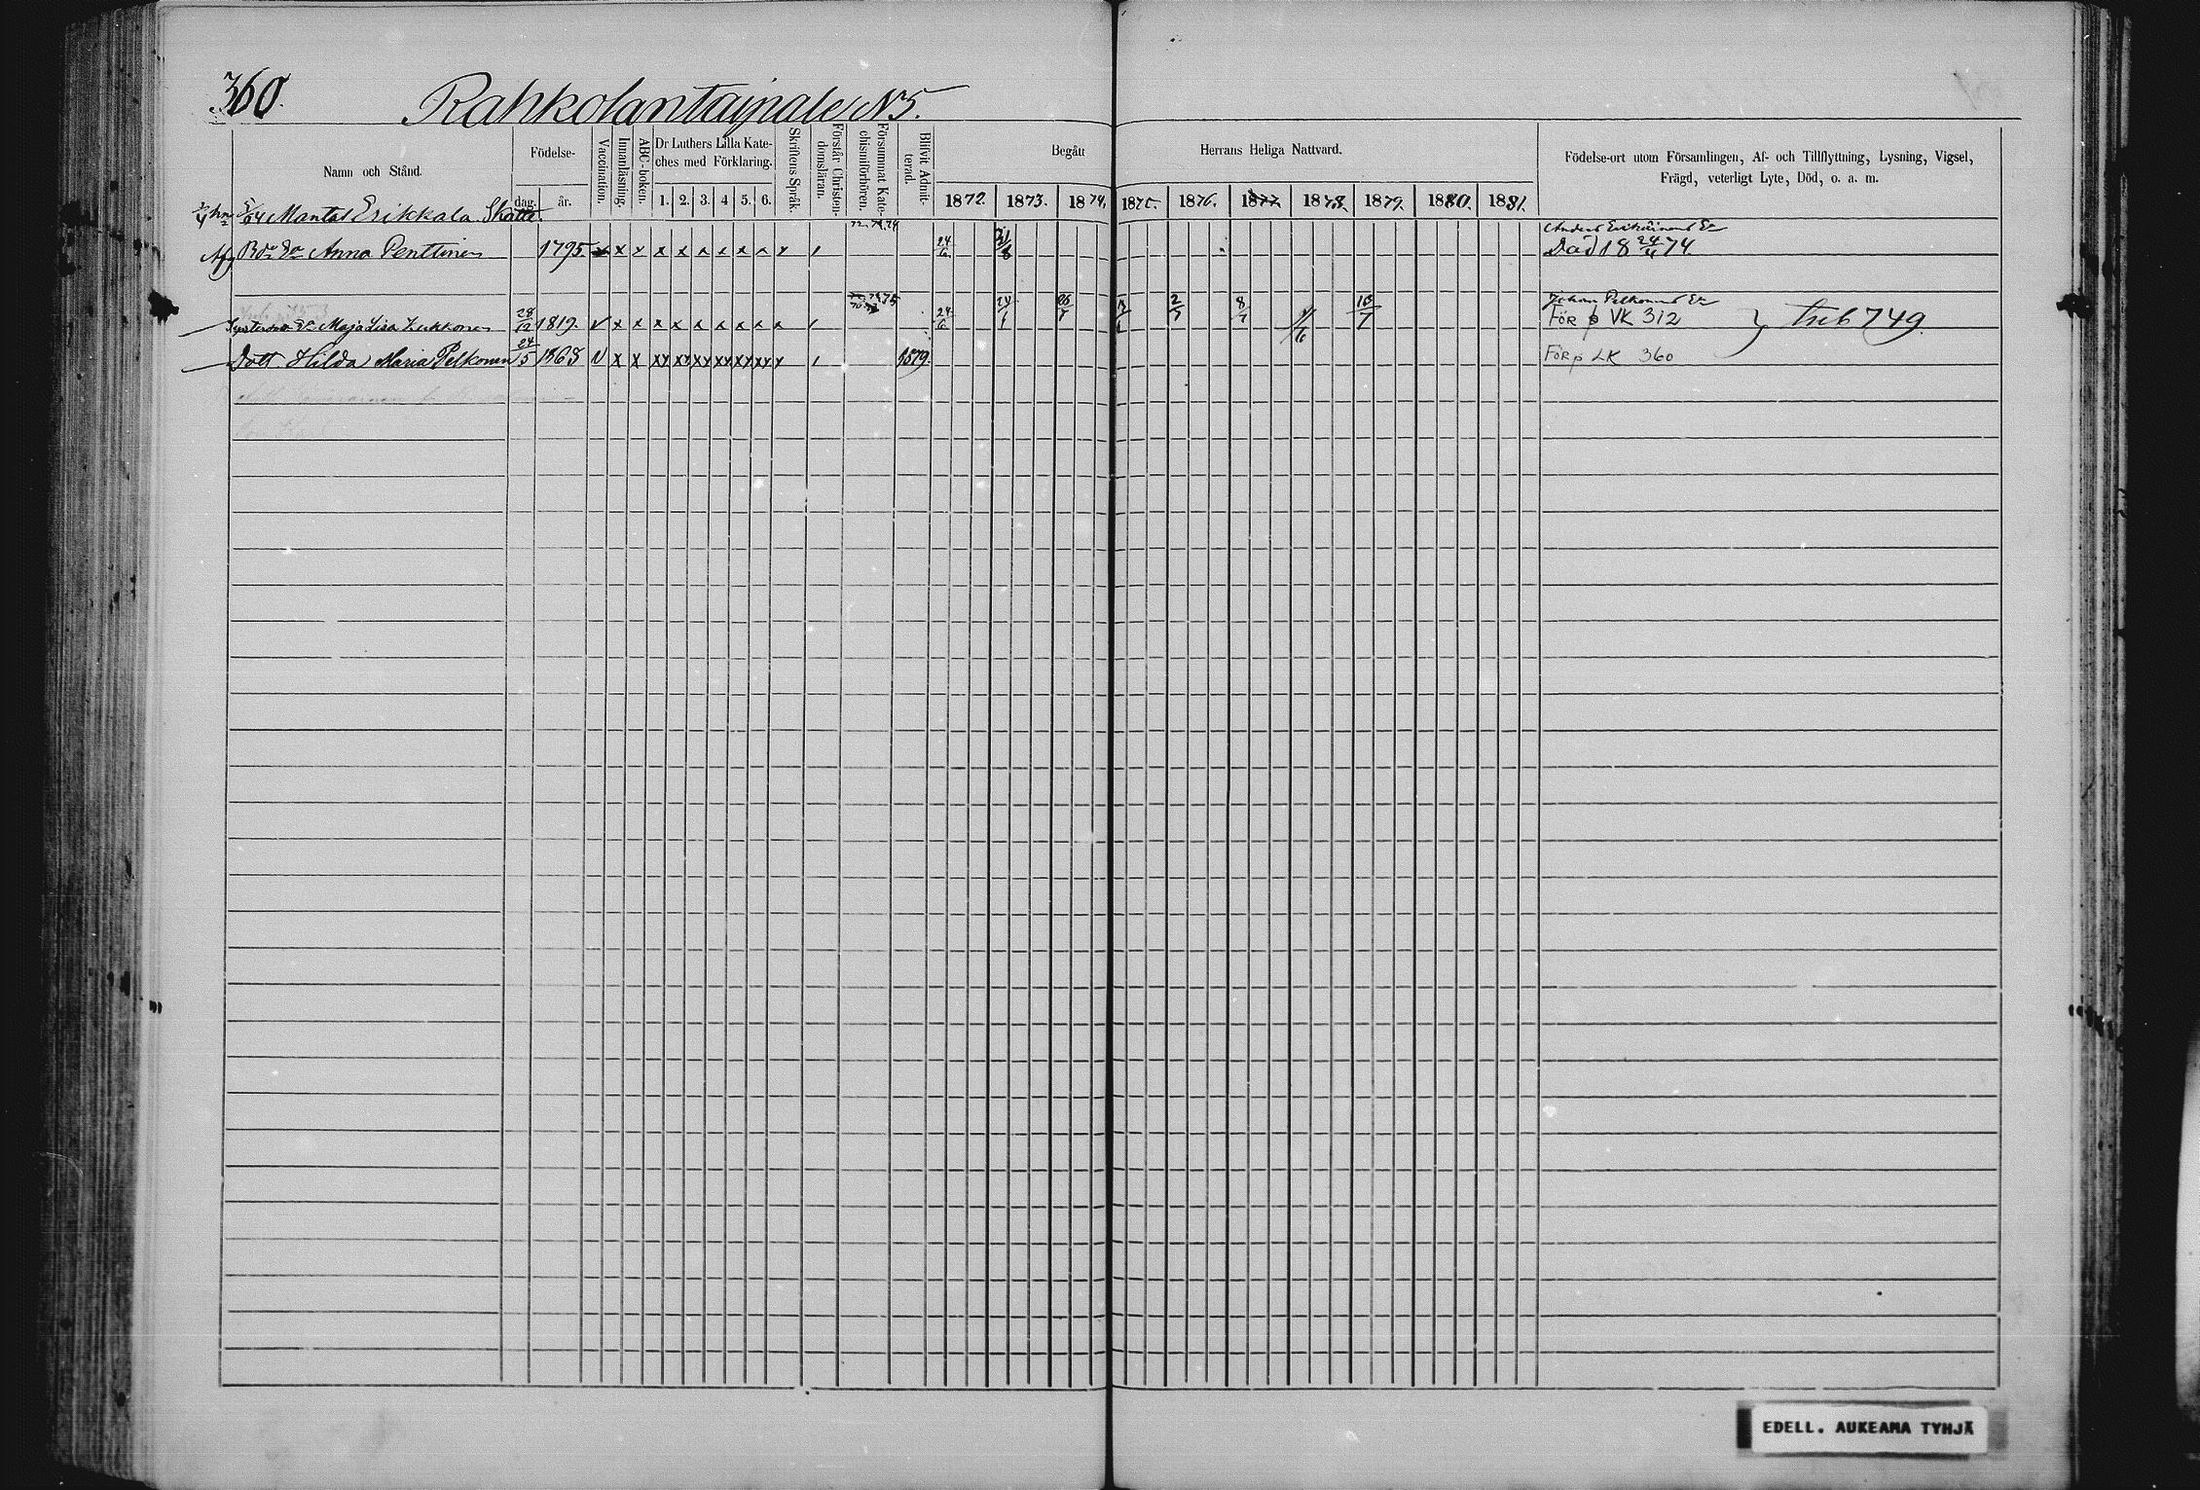 360.
Rahkolantaipale N5.
Namn och Stånd.
Födelse-
dag.
år.
Vaccination.
Innanläsning.
ABC-boken.
Dr Luthers Lilla Kate-
ches med Förklaring.
1. 2. 3. 4 5. 6.
Skriftens Språk.
Förstår Christen-
domsläran.
Försummat Kate-
chismiförhören.
Blifvit Admit-
terad.
Begått Herrans Heliga Nattvard.
1872. 1873. 1874. 1875. 1876. 1877. 1878. 1879. 1880. 1881.
Födelse-ort utom Församlingen, Af- och Tillflyttning, Lysning, Vigsel,
Frägd, veterligt Lyte, Död, o. a. m.
Mantal Erikkala Skatte
Anna Penttinen 1795 x x x x x x x x x 24/6
Död 18 24/4 74.
Johan Pelkonens
Maja Lisa 28/12 1819. v x x x x x x x x x 24/6 2/7 8/7 10/7 FÖR p VK 312 } 749.
Dott. Hilda Maria Pelkonen 24/5 1863 v x x xx xx xx xx xx xx 1879. FÖR p LK 360
EDELL. AUKEAMA TYHJÄ